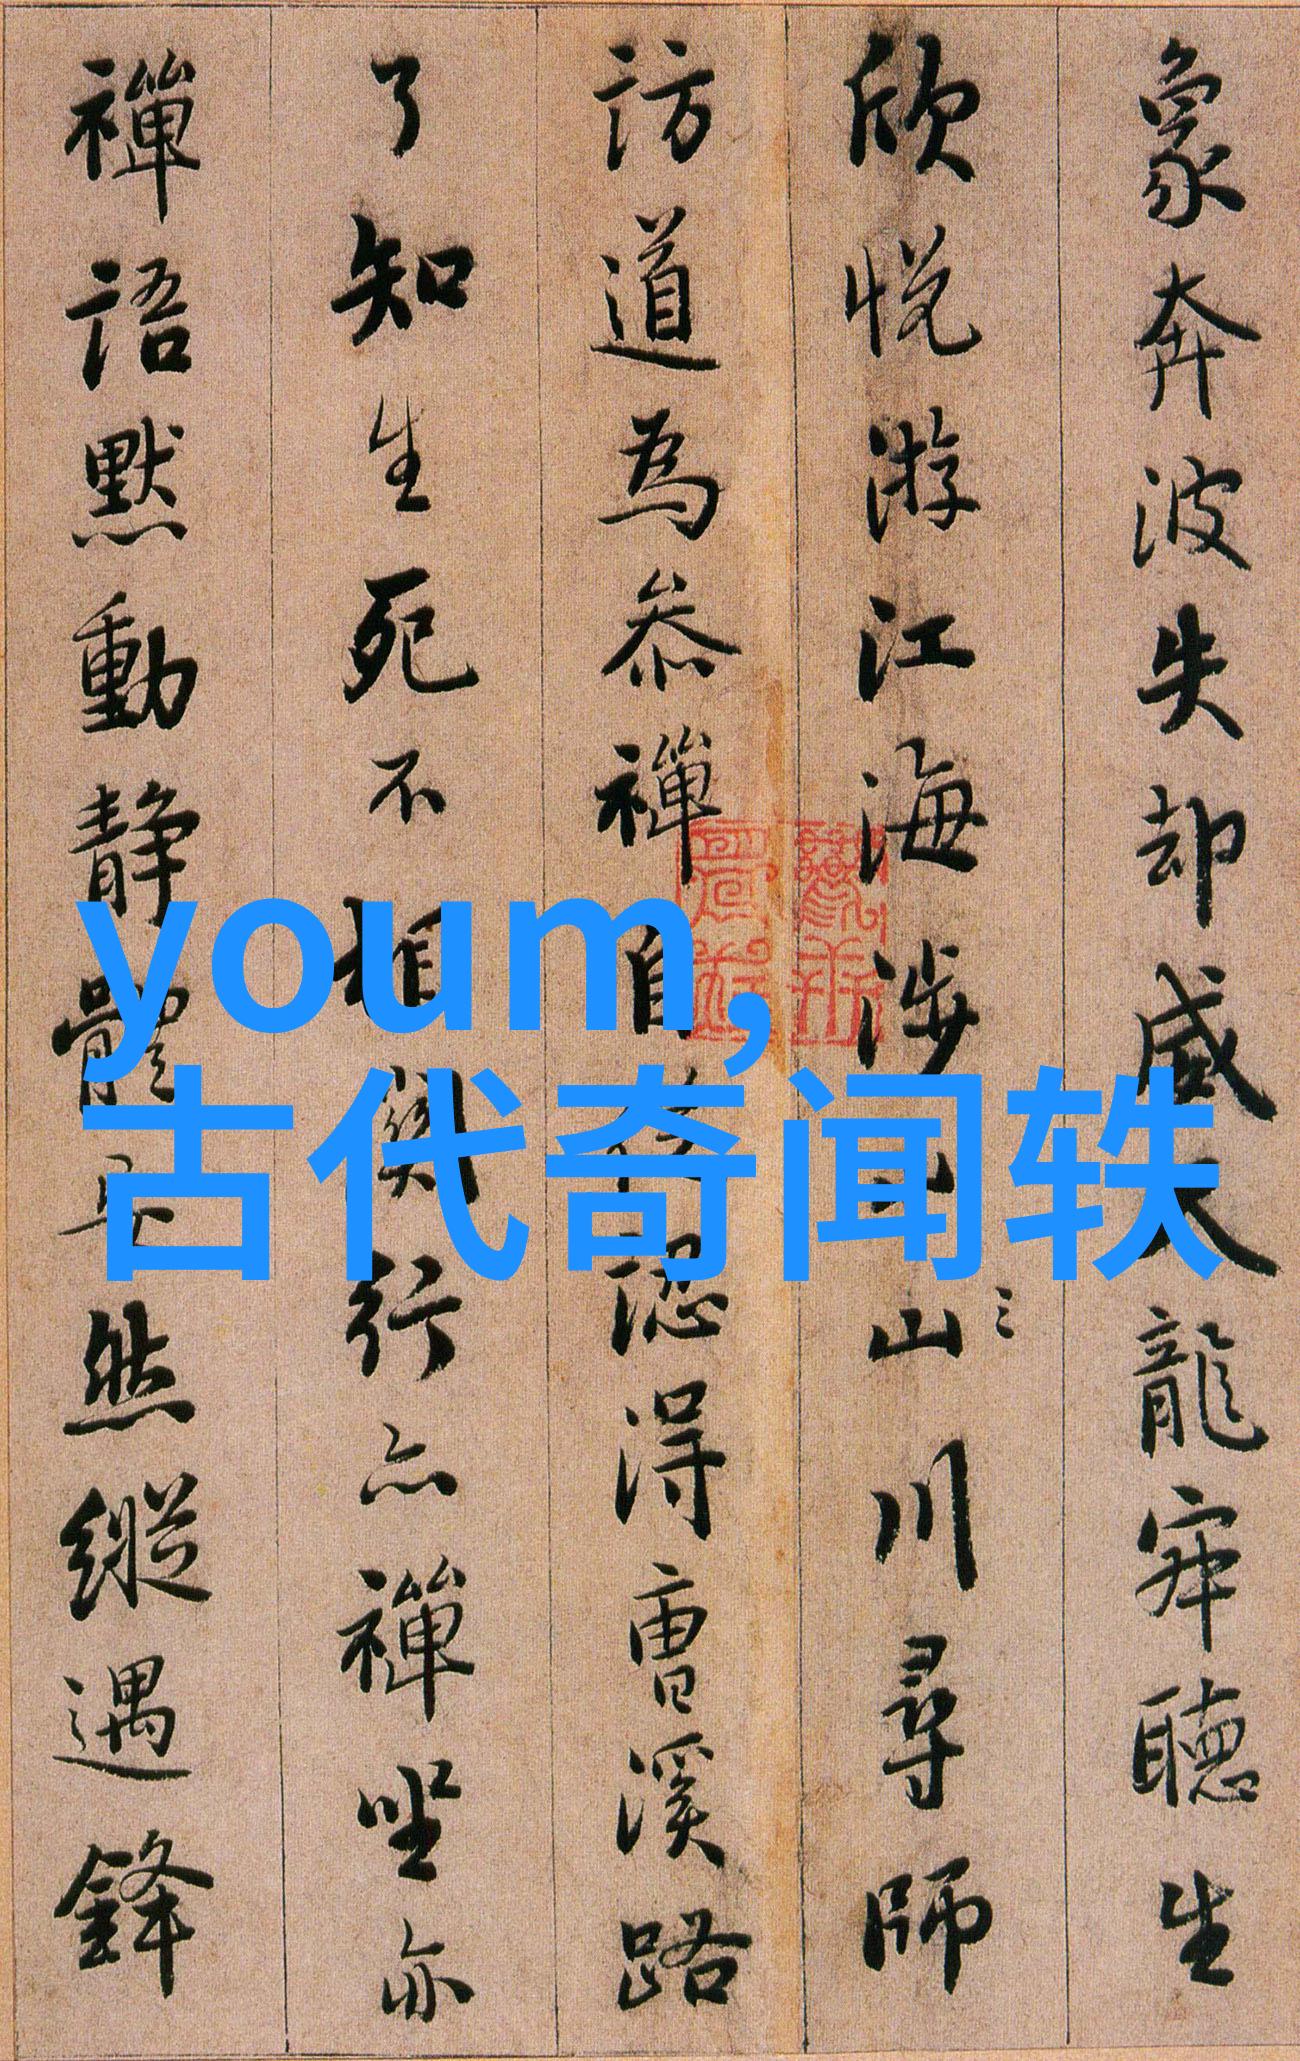 象奔波失却威天龍寂聽生
欣悅游江海涉山川尋師
訪道為參禪自從認得曹溪路
了知生死不相關行亦禪坐亦
禪語默動靜體安然縱遇鋒
youm,
古代奇闻轶